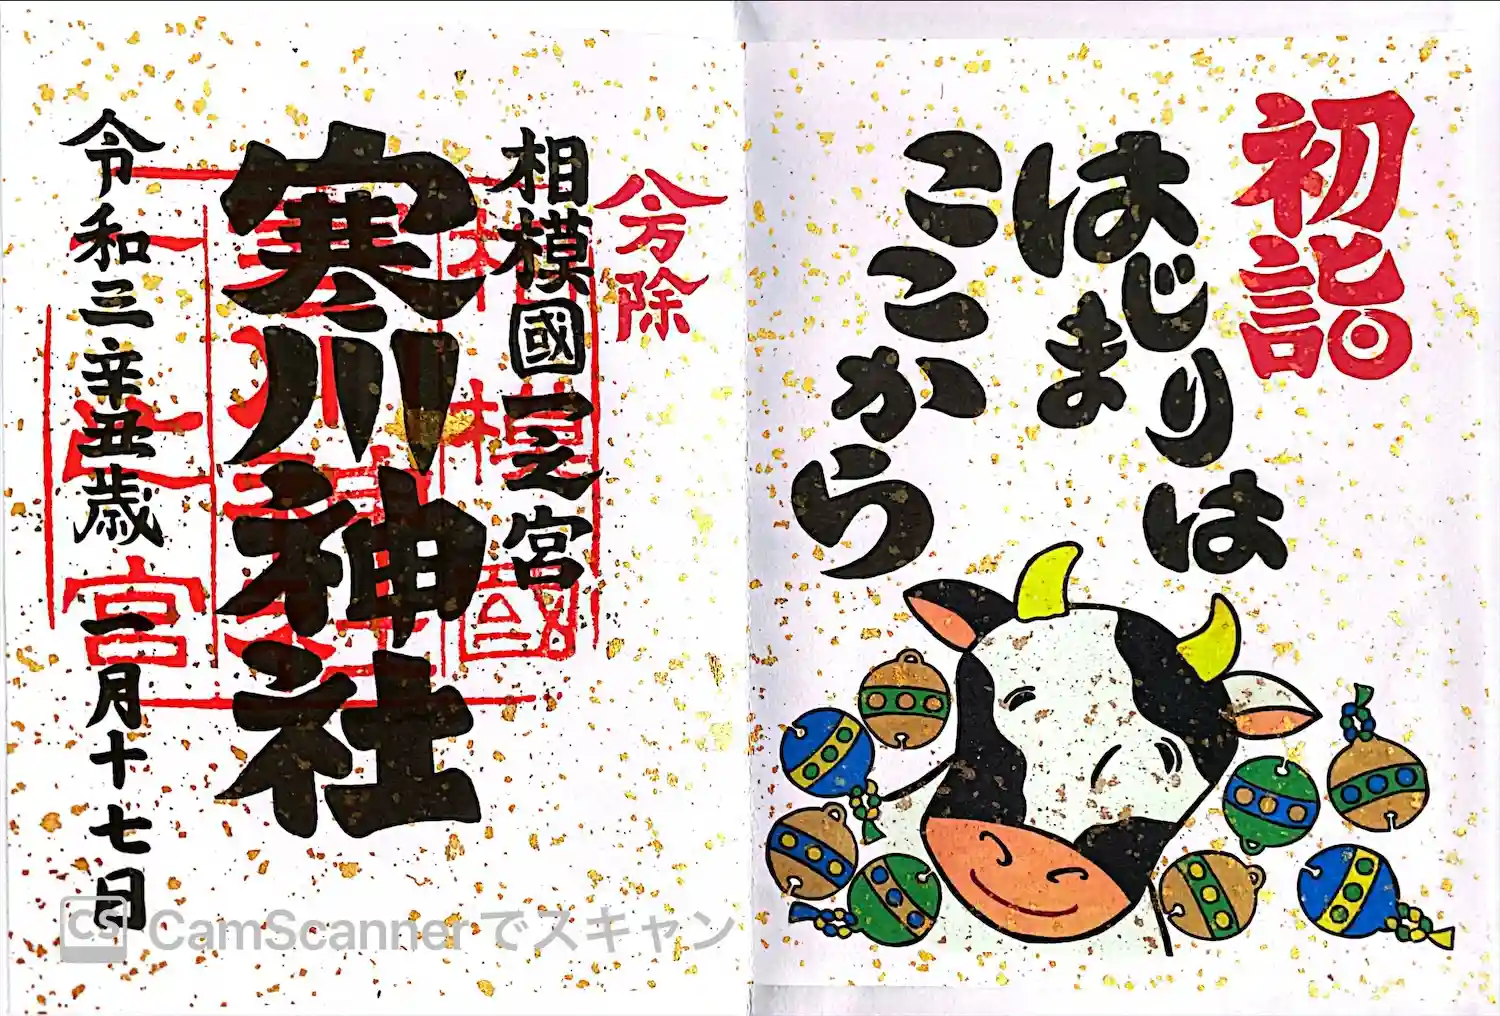 初詣
はじまりは
ここから
八方除
相模國一之宮
寒川神社
令和三辛丑歳一月十七日
相模國
一之宮
CS CamScannerでスキャン